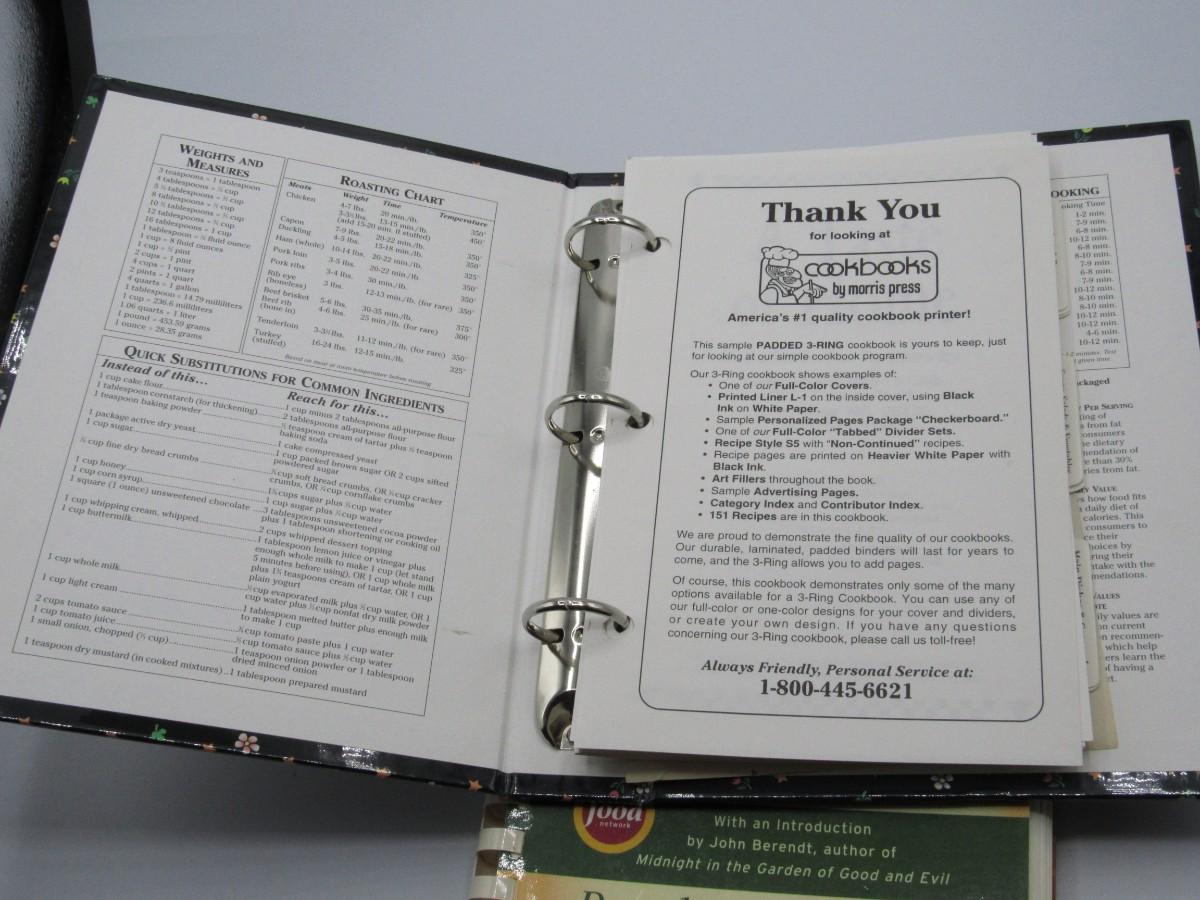 WEIGHTS AND
MEASURES
3 teaspoons = 1 tablespoon
4 tablespoons = ¼ cup
5 ⅓ tablespoons = ⅓ cup
8 tablespoons = ½ cup
10 ⅔ tablespoons = ⅔ cup
12 tablespoons = ¾ cup
16 tablespoons = 1 cup
1 tablespoon = ½ fluid ounce
1 cup = 8 fluid ounces
1 cup = ½ pint
2 cups = 1 pint
4 cups = 1 quart
2 pints = 1 quart
4 quarts = 1 gallon
1 tablespoon = 14.79 milliliters
1 cup = 236.6 milliliters
1.06 quarts = 1 liter
1 pound = 453.59 grams
1 ounce = 28.35 grams
ROASTING CHART
Meats Weight Time Temperature
Chicken 4-7 lbs. 20 min./lb. 350°
3-3½ lbs. 13-15 min./lb. 450°
(add 15-20 min. if stuffed)
Capon 7-9 lbs. 20-22 min./lb. 350°
Duckling 4-5 lbs. 15-18 min./lb. 350°
Ham (whole) 10-14 lbs. 20-22 min./lb. 325°
Pork loin 3-5 lbs. 20-22 min./lb. 350°
Pork ribs 3-4 lbs. 30 min./lb. 350°
Rib eye 3 lbs. 12-13 min./lb. (for rare) 350°
(boneless)
Beef brisket 5-6 lbs. 30-35 min./lb. 375°
Beef rib 4-6 lbs. 25 min./lb. (for rare) 300°
(bone in)
Tenderloin 3-3½ lbs. 11-12 min./lb. (for rare) 350°
Turkey 16-24 lbs. 12-15 min./lb. 325°
(stuffed)
Based on meat at room temperature before roasting
QUICK SUBSTITUTIONS FOR COMMON INGREDIENTS
Instead of this... Reach for this...
1 cup cake flour 1 cup minus 2 tablespoons all-purpose flour
1 tablespoon cornstarch (for thickening) 2 tablespoons all-purpose flour
1 teaspoon baking powder ¼ teaspoon cream of tartar plus ¼ teaspoon
baking soda
1 package active dry yeast 1 cake compressed yeast
1 cup sugar 1 cup packed brown sugar OR 2 cups sifted
powdered sugar
¼ cup fine dry bread crumbs ¾ cup soft bread crumbs, OR ¼ cup cracker
crumbs, OR ¼ cup cornflake crumbs
1 cup honey 1¼ cups sugar plus ¼ cup water
1 cup corn syrup 1 cup sugar plus ¼ cup water
1 square (1 ounce) unsweetened chocolate 3 tablespoons unsweetened cocoa powder
plus 1 tablespoon shortening or cooking oil
1 cup whipping cream, whipped 2 cups whipped dessert topping
1 cup buttermilk 1 tablespoon lemon juice or vinegar plus
enough whole milk to make 1 cup (let stand
5 minutes before using), OR 1 cup whole milk
plus 1¾ teaspoons cream of tartar, OR 1 cup
plain yogurt
1 cup whole milk ½ cup evaporated milk plus ½ cup water, OR 1
cup water plus ⅓ cup nonfat dry milk powder
1 cup light cream 1 tablespoon melted butter plus enough milk
to make 1 cup
2 cups tomato sauce ¾ cup tomato paste plus 1 cup water
1 cup tomato juice ½ cup tomato sauce plus ½ cup water
1 small onion, chopped (⅓ cup) 1 teaspoon onion powder or 1 tablespoon
dried minced onion
1 teaspoon dry mustard (in cooked mixtures) 1 tablespoon prepared mustard
Thank You
for looking at
cookbooks
by morris press
America's #1 quality cookbook printer!
This sample PADDED 3-RING cookbook is yours to keep, just
for looking at our simple cookbook program.
Our 3-Ring cookbook shows examples of:
• One of our Full-Color Covers.
• Printed Liner L-1 on the inside cover, using Black
Ink on White Paper.
• Sample Personalized Pages Package "Checkerboard."
• One of our Full-Color "Tabbed" Divider Sets.
• Recipe Style S5 with "Non-Continued" recipes.
• Recipe pages are printed on Heavier White Paper with
Black Ink.
• Art Fillers throughout the book.
• Sample Advertising Pages.
• Category Index and Contributor Index.
• 151 Recipes are in this cookbook.
We are proud to demonstrate the fine quality of our cookbooks.
Our durable, laminated, padded binders will last for years to
come, and the 3-Ring allows you to add pages.
Of course, this cookbook demonstrates only some of the many
options available for a 3-Ring Cookbook. You can use any of
our full-color or one-color designs for your cover and dividers,
or create your own design. If you have any questions
concerning our 3-Ring cookbook, please call us toll-free!
Always Friendly, Personal Service at:
1-800-445-6621
OOKING
oking Time
1-2 min.
7-9 min.
6-8 min.
10-12 min.
6-8 min.
8-10 min.
7-9 min.
6-8 min.
7-9 min.
10-12 min.
8-10 min.
8-10 min.
10-12 min.
10-12 min.
4-6 min.
10-12 min.
1-2 minutes. Test
given time
ckaged
PER SERVING
ing of
s from fat
onsumers
he dietary
mendation of
re than 30%
ries from fat.
LY VALUE
s how food fits
a daily diet of
calories. This
onsumers to
ce their
hoices by
ring their
take with the
mendations.
VALUES
OTE
ily values are
on current
on recommen-
which help
ers learn the
of having a
et.
food
network
With an Introduction
by John Berendt, author of
Midnight in the Garden of Good and Evil